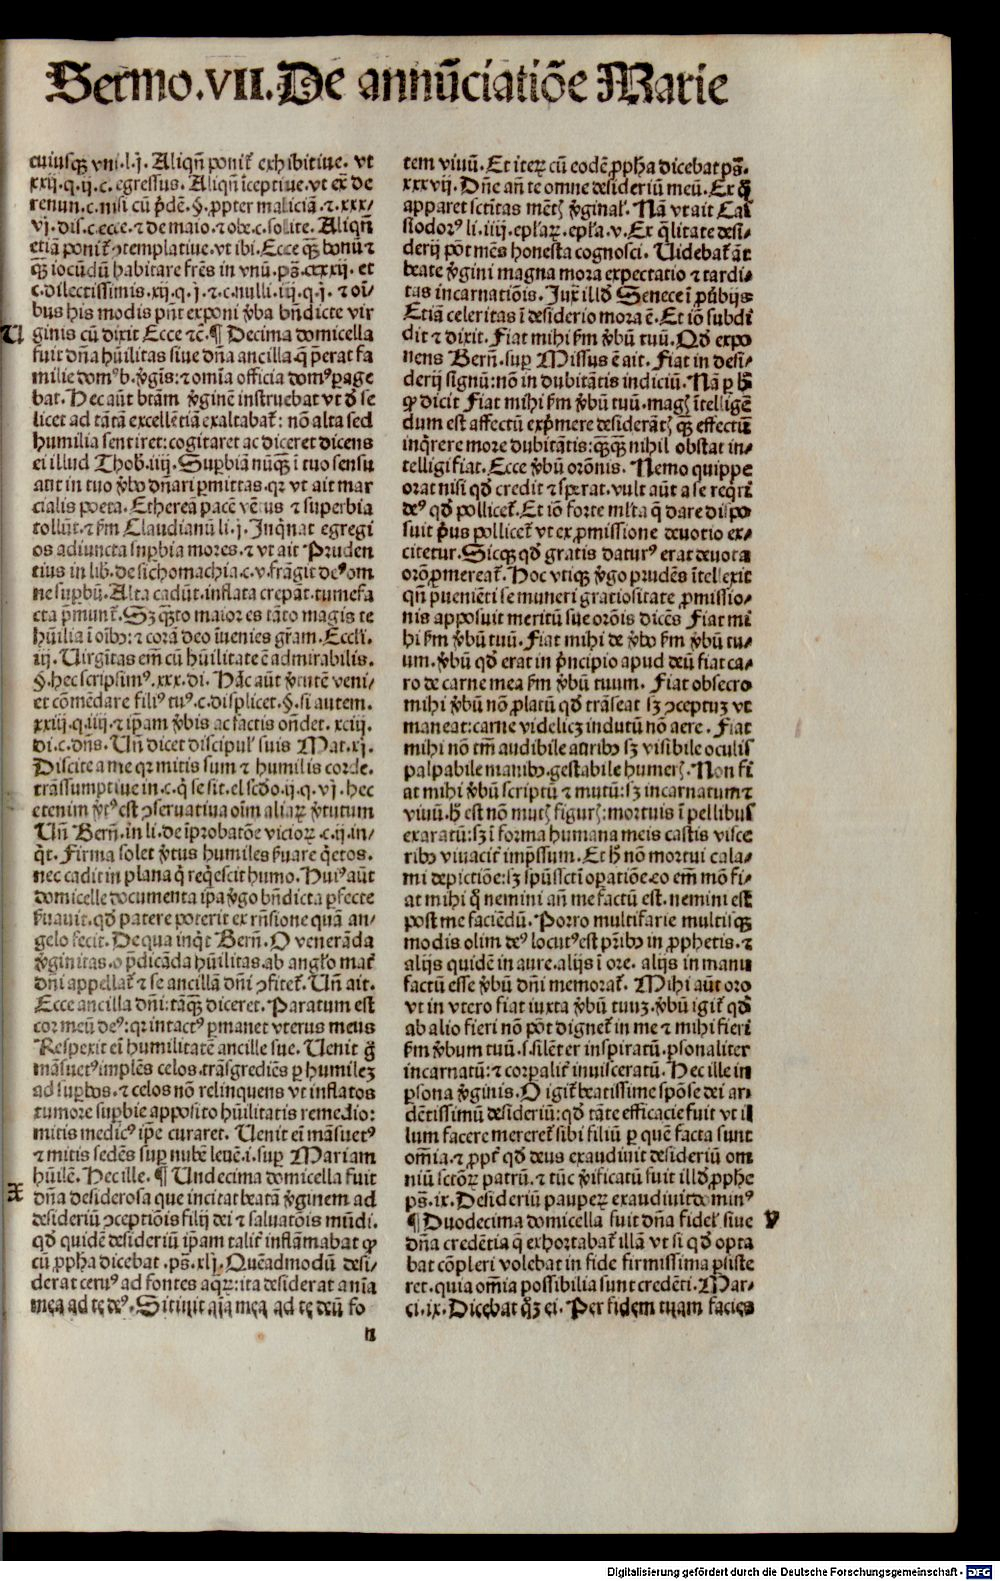 Sermo.VII.De annũciatiõe Marie
cuiusqꝫ vni.l.j. Aliqñ ponit᷑ exhibitiue. vt
xxij.q.ij.c. egressus. Aliqñ ĩceptiue. vt ex̃ de
renun.c. nisi cũ p̃dẽ.§. ꝓpter maliciã.⁊.xxx/
vj.dis.c. ecce.⁊ de maio.⁊ obe.c. solite. Aliqñ
etiã ponit᷑ ꝯtemplatiue. vt ibi. Ecce qꝫ̃ bonũ ⁊
qꝫ̃ iocũdũ habitare frẽs in vnũ. ps̃. cxxxij. et
c. dilectissimis. xij.q.j.⁊.c. nulli. iij.q.j. ⁊ oĩ/
bus his modis pñt exponi v̓ba bñdicte vir
U
ginis cũ dixit Ecce ⁊c̃. ¶ Decima domicella
fuit dña hũilitas siue dña ancilla q̃ p̃erat fa
milie domꝰ b. v̓gĩs: ⁊ omĩa officia domꝰ ꝑage
bat. Hec aũt btãm v̓ginẽ instruebat vt qđ se
licet ad tãtã excellẽtiã exaltabat᷑: nõ alta sed
humilia sentiret: cogitaret ac diceret dicens
ei illud Thob. iiij. Suꝑbiã nũqꝫ̃ ĩ tuo sensu
aut in tuo v̓bo dñari ꝑmittas. qꝛ vt ait mar
cialis poeta. Ethereã pacẽ vẽtus ⁊ superbia
tollũt. ⁊ ẜm Claudianũ li.j. Inq̓nat egregi
os adiuncta suꝑbia mores. ⁊ vt ait Pruden
tius in lib̃. de sichomachia.c.v. frãgit deꝰ om
ne suꝑbũ. Alta cadũt. inflata crepãt. tumefa
cta p̃munt᷑. Sꝫ qꝫ̃to maior es tãto magis te
hũilia ĩ oĩbꝰ: ⁊ corã deo ĩuenies gr̃am. Eccli.
iij. Uirgĩtas em̃ cũ hũilitate ẽ admirabilis.
§. hec scripsimꝰ. xxx. di. Hãc aũt v̓tutẽ veni/
et cõmẽdare filiꝰ tuꝰ.c. displicet.§. si autem.
xxiij.q.iiij. ⁊ ip̃am v̓bis ac factis oñdet. xciij.
di.c. dñs. Uñ dicet discipul̕ suis Mat. xj.
Discite a me qꝛ mitis sum ⁊ humilis corde.
trãssumptiue in.c. q̃ se sit. el scd̃o.ij.q.vj. hec
etenim v̓tꝰ est ꝯseruatiua oĩm aliaꝝ v̓tutum
Uñ Berñ. in li. de ĩprobatõe vicioꝝ.c.ij. in/
q̓t. Firma solet v̓tus humiles ẜuare q̓etos.
nec cadit in plana q̓ req̓escit humo. Huiꝰ aũt
domicelle documenta ip̃a v̓go bñdicta ꝑfecte
ẜuauit. qđ patere poterit ex rñsione quã an/
gelo fecit. De qua inq̓t Berñ. O venerãda
v̓ginitas. o p̃dicãda hũilitas. ab angl̕o mat᷑
dñi appellat᷑ ⁊ se ancillã dñi ꝯfitet᷑. Uñ ait.
Ecce ancilla dñi: tãqꝫ̃ diceret. Paratum est
cor meũ deꝰ: qꝛ intactꝰ ꝑmanet vterus meus
Respexit em̃ humilitatẽ ancille sue. Uenit g̃
mãsuetꝰ implẽs celos. trãsgrediẽs ꝑ humileꝫ
ad suꝑbos. ⁊ celos nõ relinquens vt inflatos
tumore suꝑbie apposito hũilitatis remedio:
mitis medicꝰ ip̃e curaret. Uenit em̃ mãsuetꝰ
⁊ mitis sedẽs suꝑ nubẽ leuẽ.i. suꝑ Mariam
hũilẽ. Hec ille. ¶ Undecima domicella fuit
X
dña desiderosa que incitat beatã v̓ginem ad
desideriũ ꝯceptiõis filij dei ⁊ saluatõis mũdi.
qđ quidẽ desideriũ ip̃am talit᷑ inflãmabat ꝙ
cũ ꝓpha dicebat. ps̃. xlj. Quẽadmodũ desi/
derat ceruꝰ ad fontes aq̃ꝝ: ita desiderat anĩa
mea ad te deꝰ. Sitiuit aĩa mea ad te deũ fo
n
tem viuũ. Et iteꝝ cũ eodẽ ꝓpha dicebat ps̃.
xxxvij. Dñe añ te omne desideriũ meũ. Ex q̃
apparet sctĩtas mẽtꝭ v̓ginal̕. Nã vt ait Cas
siodorꝰ li. iiij. epl̕aꝝ. epl̕a.v. Ex q̃litate desi/
derij põt mẽs honesta cognosci. Uidebat᷑ aũt
beate v̓gini magna mora expectatio ⁊ tardi/
tas incarnatiõis. Jux̃ illđ Senece ĩ ꝓũbijs
Etiã celeritas ĩ desiderio mora ẽ. Et iõ subdi
dit ⁊ dixit. Fiat mihi ẜm v̓bũ tuũ. Qđ expo
nens Berñ. suꝑ Missus ẽ ait. Fiat in desi/
derij signũ: nõ in dubitãtis indiciũ. Nã ꝑ h̃
ꝙ dicit Fiat mihi ẜm v̓bũ tuũ. magꝭ ĩtelligẽ
dum est affectũ exp̓mere desiderãtꝭ qꝫ̃ effectũ
inq̓rere more dubitãtis: qꝫ̃qꝫ̃ nihil obstat in/
telligi fiat. Ecce v̓bũ orõnis. Nemo quippe
orat nisi qđ credit ⁊ sꝑat. vult aũt a se req̓ri
deꝰ qđ pollicet᷑. Et iõ forte ml̕ta q̃ dare dispo
suit p̓us pollicet᷑ vt ex ꝓmissione deuotio ex/
citetur. Sicqꝫ qđ gratis daturꝰ erat deuota
orõ ꝓmereat᷑. Hoc vtiqꝫ v̓go prudẽs ĩtellexit
qñ p̃ueniẽti se muneri gratiositate ꝓmissio/
nis apposuit meritũ sue orõis dicẽs Fiat mi
hi ẜm v̓bũ tuũ. Fiat mihi de v̓bo ẜm v̓bũ tu/
um. v̓bũ qđ erat in p̓ncipio apud deũ fiat ca/
ro de carne mea ẜm v̓bũ tuum. Fiat obsecro
mihi v̓bũ nõ ꝓlatũ qđ trãseat sꝫ ꝯceptuꝫ vt
maneat: carne videlicꝫ indutũ nõ aere. Fiat
mihi nõ tm̃ audibile auribꝰ sꝫ visibile oculis
palpabile manibꝰ. gestabile humerꝭ. Non fi
at mihi v̓bũ scriptũ ⁊ mutũ: sꝫ incarnatum ⁊
viuũ. h̃ est nõ mutꝭ figurꝭ: mortuis ĩ pellibus
exaratũ: sꝫ ĩ forma humana meis castis visce
ribꝰ viuacit᷑ imp̃ssum. Et h̃ nõ mortui cala/
mi depictiõe: sꝫ sp̃ussctĩ oꝑatiõe. eo em̃ mõ fi/
at mihi q̃ nemini añ me factũ est. nemini est
post me faciẽdũ. Porro multifarie multisqꝫ
modis olim deꝰ locutꝰ est pr̃ibꝰ in ꝓphetis. ⁊
alijs quidẽ in aure. alijs ĩ ore. alijs in manu
factũ esse v̓bũ dñi memorat᷑. Mihi aũt oro
vt in vtero fiat iuxta v̓bũ tuuꝫ. v̓bũ igit᷑ qđ
ab alio fieri nõ põt dignet᷑ in me ⁊ mihi fieri
ẜm v̓bum tuũ.s. silẽter inspiratũ. ꝑsonaliter
incarnatũ: ⁊ corꝑalit᷑ inuisceratũ. Hec ille in
ꝑsona v̓ginis. O igit᷑ beatissime spõse dei ar/
dẽtissimũ desideriũ: qđ tãte efficacie fuit vt il
lum facere mereret᷑ sibi filiũ ꝑ quẽ facta sunt
om̃ia. ⁊ ꝓpt᷑ qđ deus exaudiuit desideriũ om
niũ sctõꝝ patrũ. ⁊ tũc v̓ificatũ fuit illđ ꝓphe
ps̃. ix. Desideriũ pauperꝝ exaudiuit dominꝰ
¶ Duodecima domicella fuit dña fidel̕ siue
Y
dña credẽtia q̃ exhortabat᷑ illã vt si qđ opta
bat cõpleri volebat in fide firmissima ꝑsiste
ret. quia om̃ia possibilia sunt credẽti. Mar/
ci. ix. Dicebat qꝫ̃ ei. Per fidem tuam facies
Digitalisierung gefördert durch die Deutsche Forschungsgemeinschaft - DFG